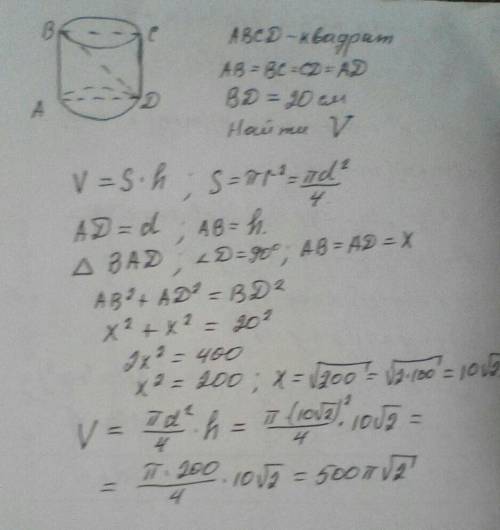 B C
A D
ABCD – квадрат
AB = BC = CD = AD
BD = 20 см
Найти V
V = S · h ; S = πr² = πd²/4
AD = d ; AB = h.
△ BAD ; ∠D = 90° ; AB = AD = x
AB² + AD² = BD²
x² + x² = 20²
2x² = 400
x² = 200 ; x = √200 = √2·100 = 10√2
V = πd²/4 · h = π(10√2)²/4 · 10√2 =
= π · 200/4 · 10√2 = 500π√2